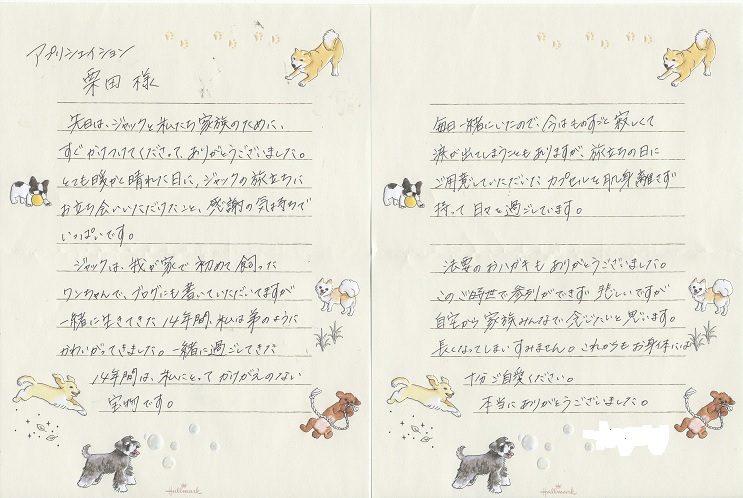 アプリシェイション
栗田 様
先日は、ジャックと私たち家族のために、
すぐかけつけてくださって、ありがとうございました。
とても暖かく晴れた日に、ジャックの旅立ちに
お立ち会いいただけたこと、感謝の気持ちで
いっぱいです。
ジャックは、我が家で初めて飼った
ワンちゃんで、ブログにも書いていただいてますが
一緒に生きてきた14年間、私は弟のように
かわいがってきました。一緒に過ごしてきた
14年間は、私にとってかけがえのない
宝物です。
Hallmark
毎日一緒にいたので、今はものすごく寂しくて
涙が出てしまうこともありますが、旅立ちの日に
ご用意していただいたカプセルを肌身離さず
持って日々を過ごしています。
法要のおハガキもありがとうございました。
このご時世で参列ができず悲しいですが
自宅から家族みんなで念じたいと思います。
長くなってしまいすみません。これからもお身体には
十分ご自愛ください。
本当にありがとうございました。
Hallmark